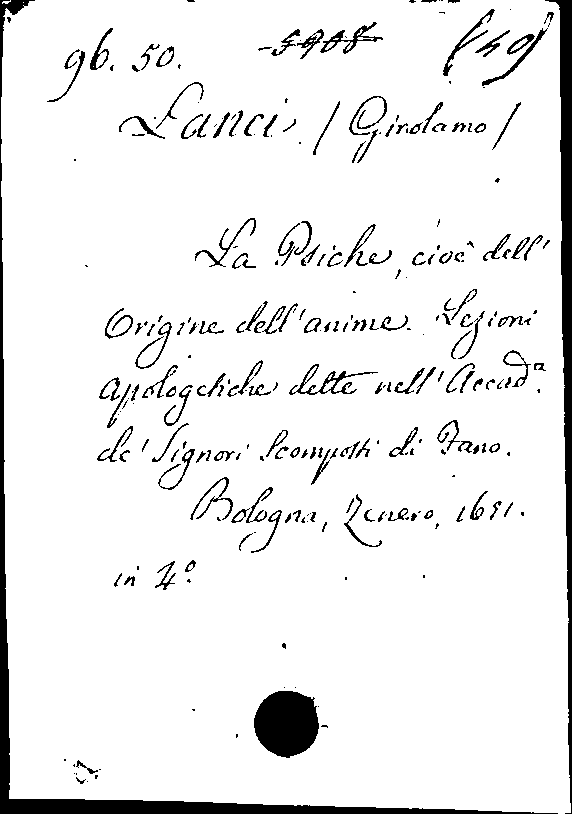 96. 50. 5908 (40)
Lanci / Girolamo /
La Psiche, cioè dell'
Origine dell'anime. Lezioni
apologetiche dette nell'Accad.ª
de' Signori Scomposti di Fano.
Bologna, Zenero, 1651.
in 4.º